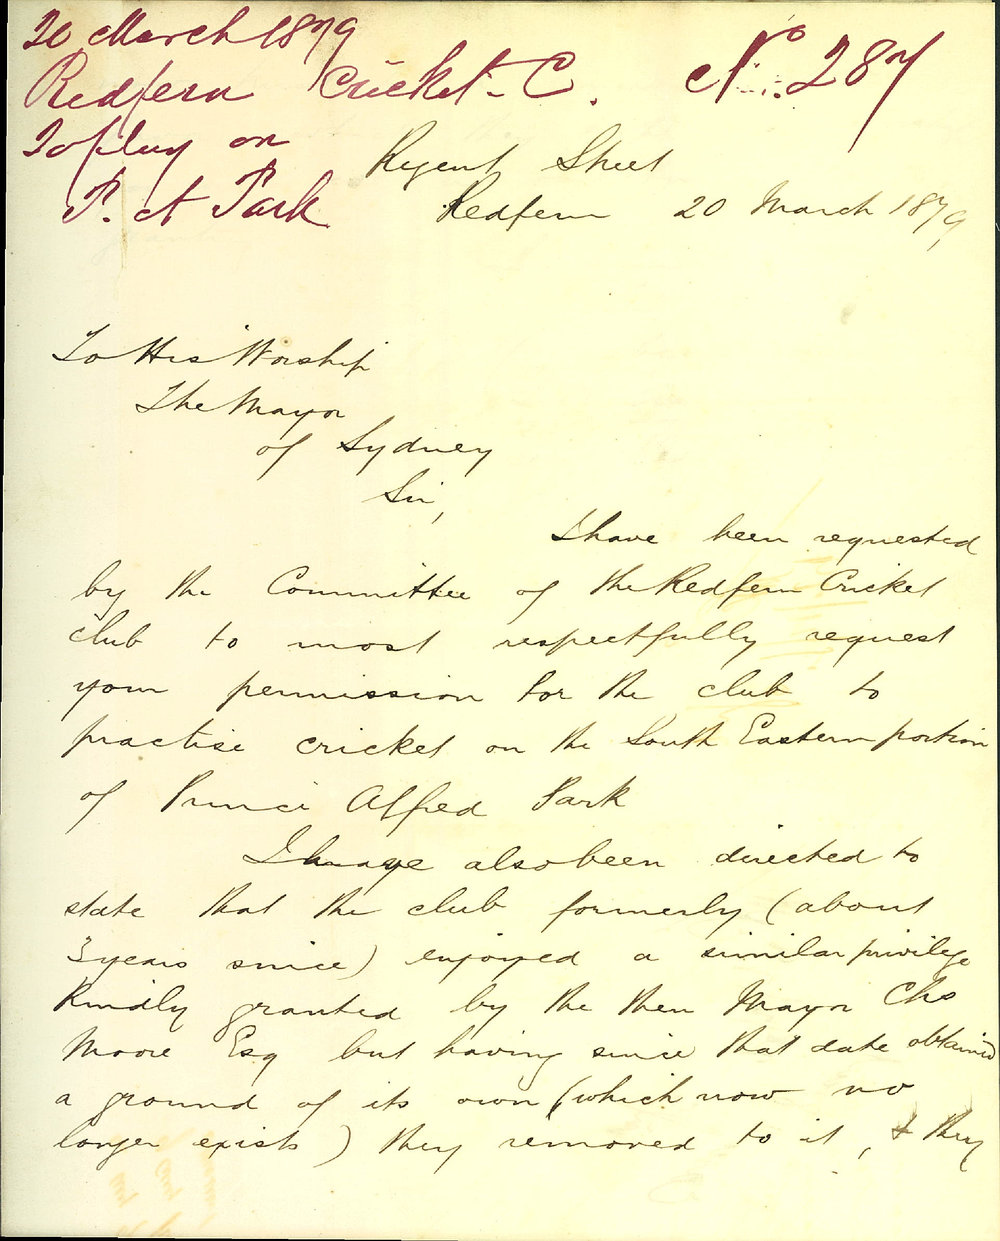 20 March 1879
Redfern Cricket C. No. 287
To play on
P. A Park
Regent Street
Redfern 20 March 1879,
To His Worship
The Mayor
of Sydney
Sir,
I have been requested
by the Committee of the Redfern Cricket
club to most respectfully request
your permission for the club to
practise cricket on the South Eastern portion
of Prince Alfred Park
I have also been directed to
state that the club formerly (about
3 years since) enjoyed a similar privilege
kindly granted by the then Mayor Chs
Moore Esq but having since that date obtained
a ground of its own (which now no
longer exists) they removed to it, & they